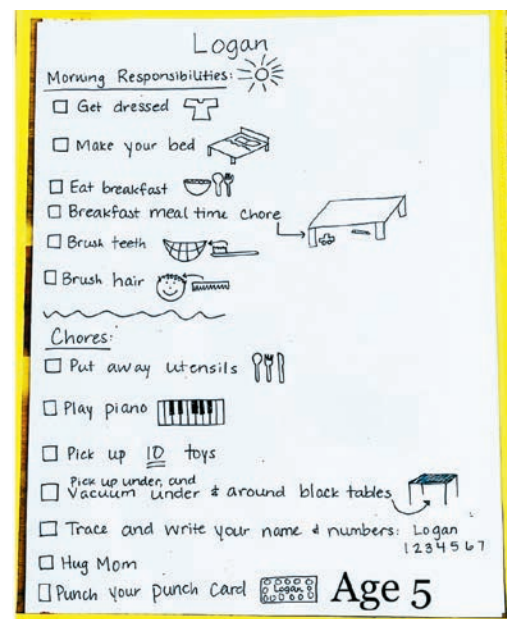 Logan
Morning Responsibilities:
Get dressed
Make your bed
Eat breakfast
Breakfast meal time chore
Brush teeth
Brush hair
Chores:
Put away utensils
Play piano
Pick up 10 toys
Pick up under, and
Vacuum under & around black tables
Trace and write your name & numbers: Logan
1 2 3 4 5 6 7
Hug Mom
Punch your punch card Logan Age 5